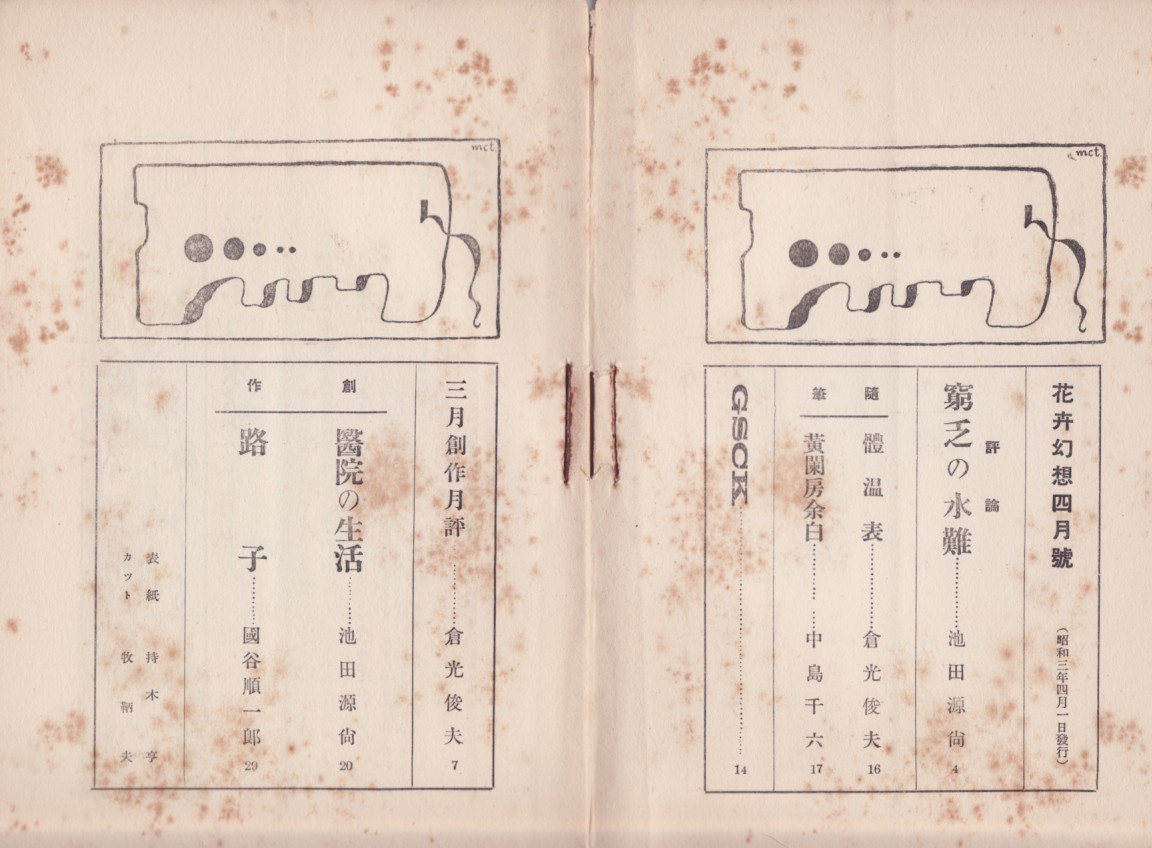 mct
花卉幻想四月號 (昭和三年四月一日發行)
評論
窮乏の水難………… 池田源尙 4
隨筆
體溫表………… 倉光俊夫 16
黃蘭房余白………… 中島千六 17
GSCK………… 14
mct
三月創作月評………… 倉光俊夫 7
創作
醫院の生活………… 池田源尙 20
路子………… 國谷順一郞 29
表紙 持木亨
カット 牧鞆夫